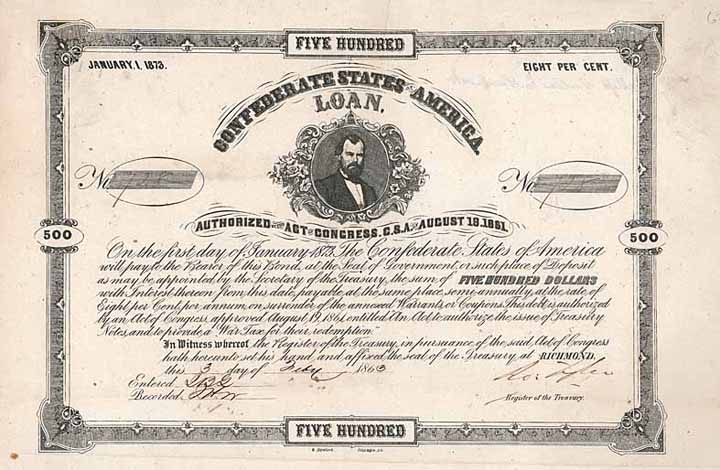 FIVE HUNDRED
JANUARY, 1, 1873.
EIGHT PER CENT.
CONFEDERATE STATES OF AMERICA.
LOAN,
No
No
AUTHORIZED BY THE ACT OF CONGRESS, C.S.A. OF AUGUST 19, 1861.
500
500
On the first day of January 1873, The Confederate States of America
will pay to the Bearer of this Bond, at the Seat of Government, or such place of Deposit
as may be appointed by the Secretary of the Treasury, the sum of FIVE HUNDRED DOLLARS
with Interest thereon from this date, payable at the same place, semi annually, at the rate of
Eight per Cent, per annum, on surrender of the annexed Warrants, or Coupons. This debt is authorized
by an Act of Congress, approved August 19, 1861 entitled "An Act to authorize the issue of Treasury
Notes, and to provide a War Tax for their redemption."
In Witness whereof, the Register of the Treasury, in pursuance of the said, Act of Congress
hath hereunto set his hand and affixed the seal of the Treasury, at RICHMOND,
this 3 day of Feby 1863
Entered
Recorded
Register of the Treasury.
FIVE HUNDRED